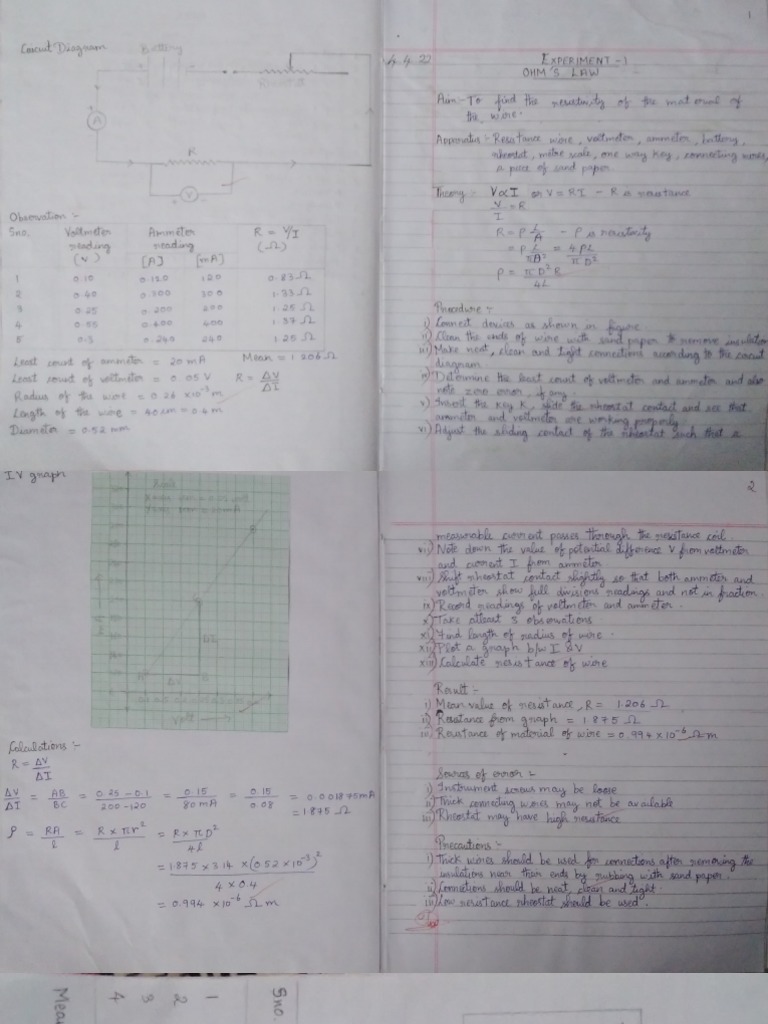 Circuit Diagram
Battery
A
R
V
Observation :-
Sno. Voltmeter reading (V) Ammeter reading [A] [mA] R = V/I (Ω)
1 0.10 0.120 120 0.83 Ω
2 0.40 0.300 300 1.33 Ω
3 0.25 0.200 200 1.25 Ω
4 0.55 0.400 400 1.37 Ω
5 0.3 0.240 240 1.25 Ω
Least count of ammeter = 20 mA Mean = 1.206 Ω
Least count of voltmeter = 0.05 V R = ΔV/ΔI
Radius of the wire = 0.26 x10⁻³ m
Length of the wire = 40 cm = 0.4 m
Diameter = 0.52 mm
1
4.4.22
EXPERIMENT - 1
OHM'S LAW
Aim:- To find the resistivity of the material of
the wire.
Apparatus :- Resistance wire, voltmeter, ammeter, battery,
rheostat, metre scale, one way key, connecting wires,
a piece of sand paper
Theory:- V∝I or V = RI - R is resistance
V/I = R
R = ρ L/A - ρ is resistivity
= ρ L/πD² = 4ρL/πD²
ρ = πD²R/4L
Procedure :-
i) Connect devices as shown in figure
ii) Clean the ends of wire with sand paper to remove insulation
iii) Make neat, clean and tight connections according to the circuit
diagram
iv) Determine the least count of voltmeter and ammeter and also
note zero error, if any
v) Insert the key K, slide the rheostat contact and see that
ammeter and voltmeter are working properly
vi) Adjust the sliding contact of the rheostat such that a
I.V graph
Scale
ΔI
ΔV
Volt
Calculations :-
R = ΔV/ΔI
ΔV/ΔI = AB/BC = 0.25 - 0.1/200 - 120 = 0.15/80 mA = 0.15/0.08 = 0.001875 mA
= 1.875 Ω
ρ = RA/l = R × πr²/l = R × πD²/4l
= 1.875 × 3.14 × (0.52 × 10⁻³)²/4 × 0.4
= 0.994 × 10⁻⁶ Ω m
2
measurable current passes through the resistance coil.
vii) Note down the value of potential difference V from voltmeter
and current I from ammeter
viii) Shift rheostat contact slightly so that both ammeter and
voltmeter show full divisions readings and not in fraction.
ix) Record readings of voltmeter and ammeter.
x) Take atleast 5 observations
xi) Find length of radius of wire.
xii) Plot a graph b/w I & V
xiii) Calculate resistance of wire
Result :-
i) Mean value of resistance, R = 1.206 Ω
ii) Resistance from graph = 1.875 Ω
iii) Resistance of material of wire = 0.994 x10⁻⁶ Ω m
Sources of error :-
i) Instrument screws may be loose
ii) Thick connecting wires may not be available
iii) Rheostat may have high resistance
Precautions :-
i) Thick wires should be used for connections after removing the
insulations near their ends by rubbing with sand paper.
ii) Connections should be neat, clean and tight.
iii) Low resistance rheostat should be used.
Sno.
1
2
3
4
Mea